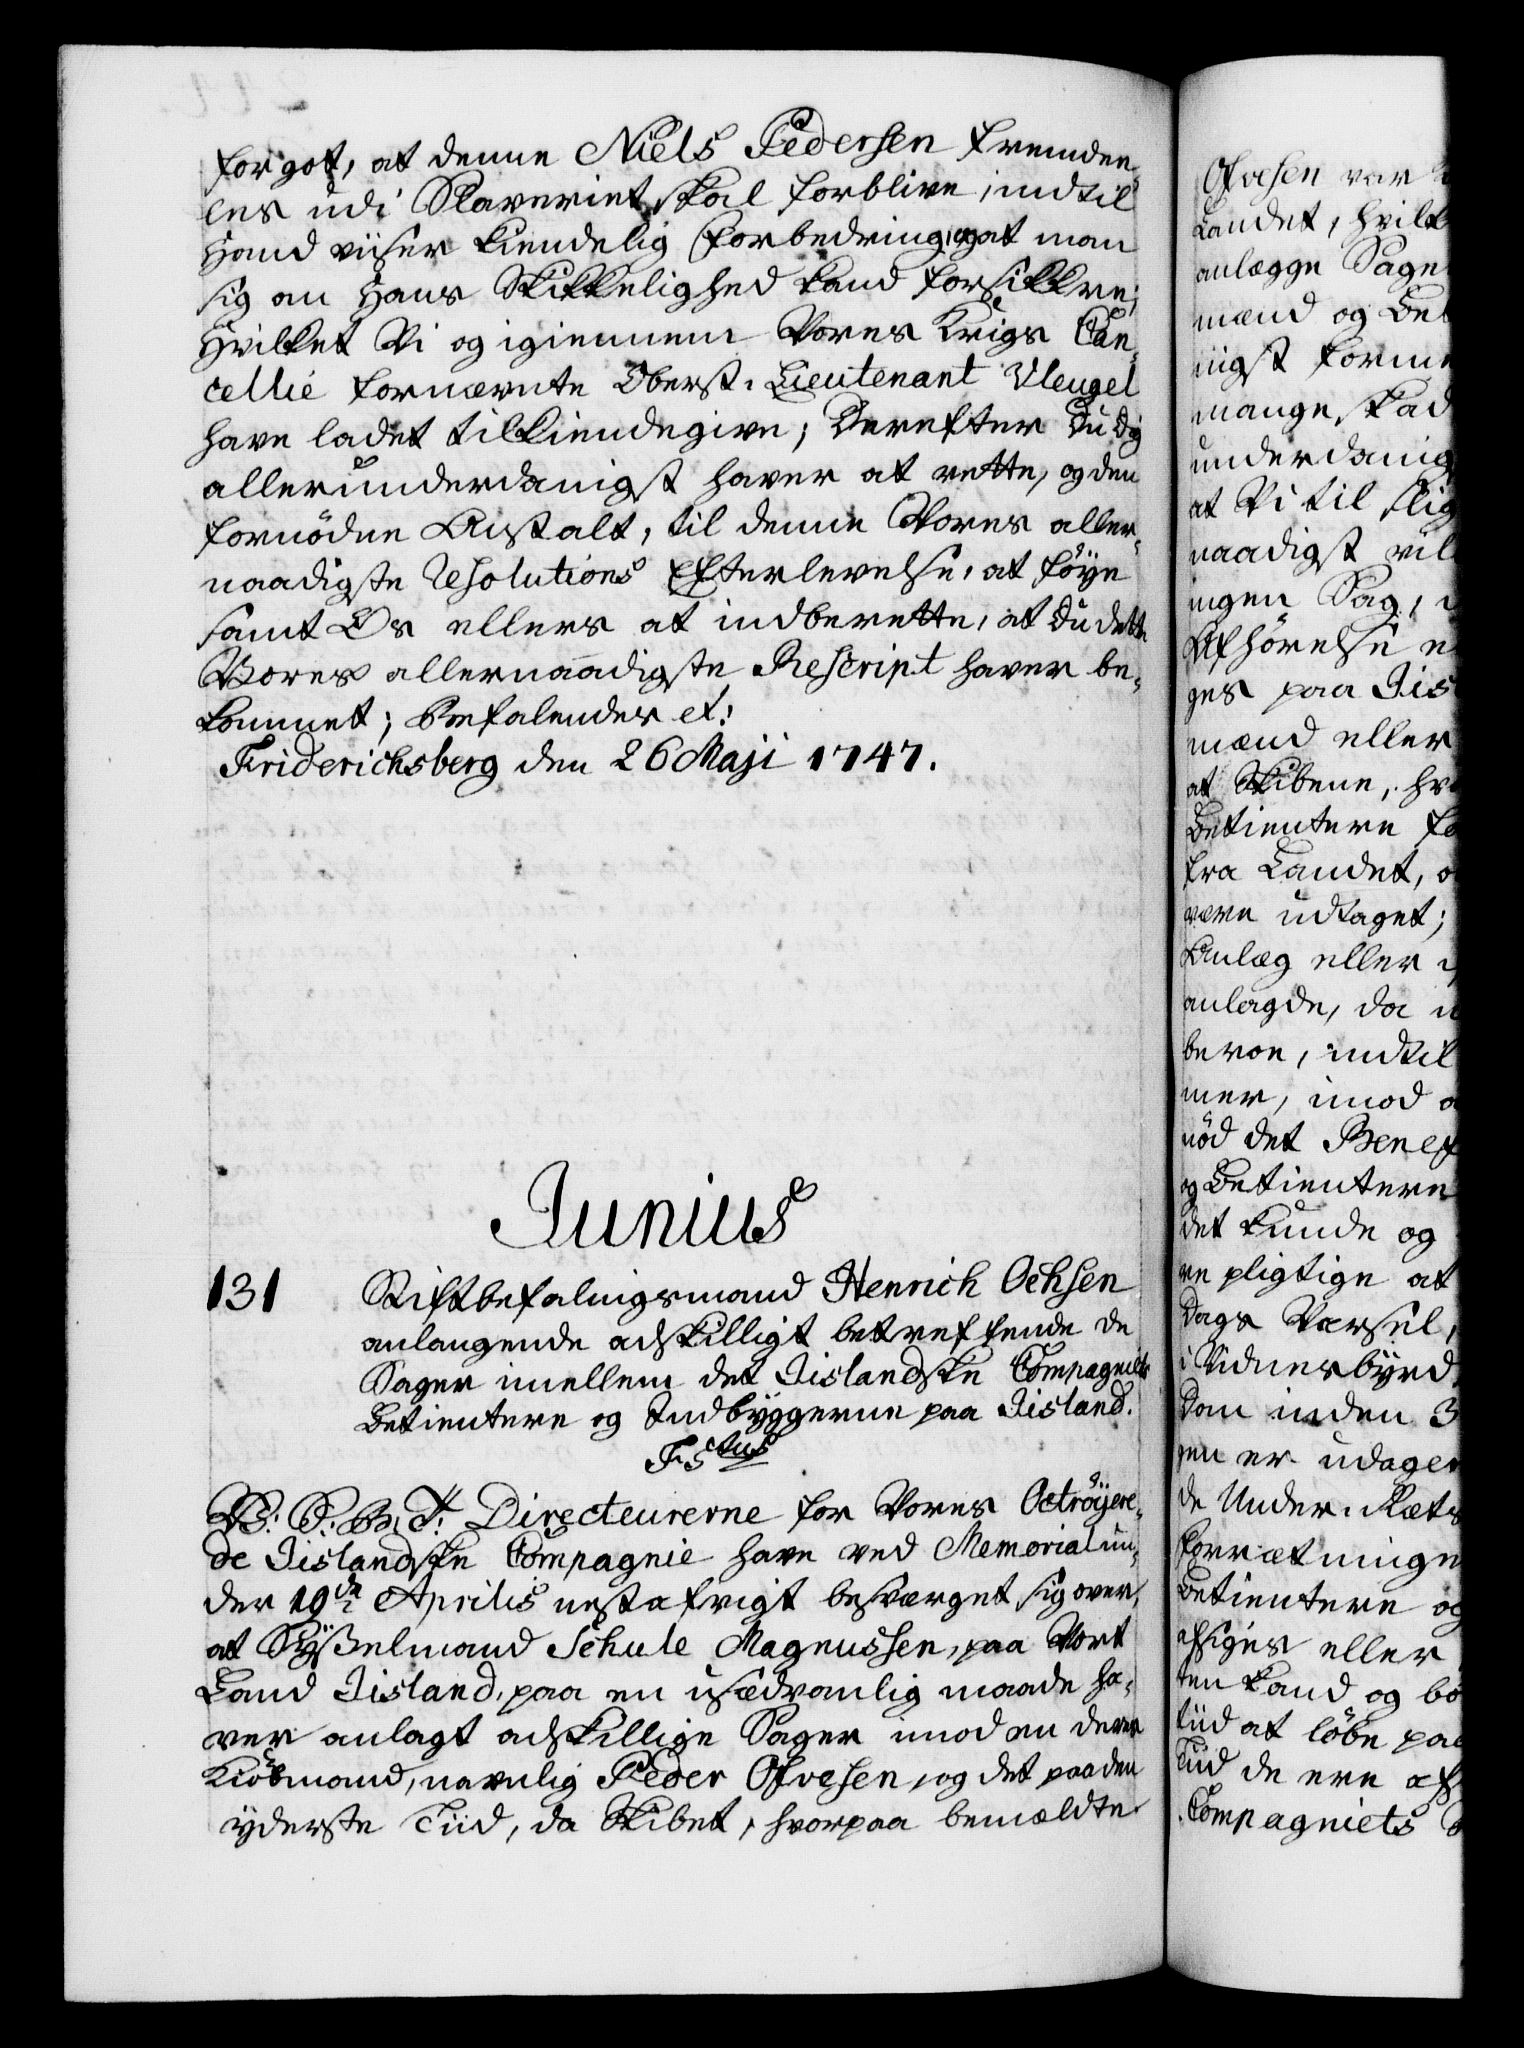 for got, at denne Niels Pedersen fremdee-
les udi Slaveriet skal forblive, indtil
Hand viiser kiendelig Forbedring, og at man
sig om Hans Skikkelighed kand forsikkre;
Hvilket Vi og igiennem Vores Krigs Can-
cellie fornævnte Oberst-Lieutenant Vleugel
have ladet tilkiendegive; Derefter Du dig
allerunderdanigst haver at rette, og den
fornødne Anstalt, til denne Vores aller-
naadigste Resolutions Efterlevelse, at føye
samt Os ellers at indberette, at du dette
Vores allernaadigste Rescript haver be-
kommet; Befalendes et:
Friderichsberg den 26 Maji 1747.
Junius
131
Stiftbefalingsmand Henrich Ochsen
anlangende adskilligt betreffende de
Sager imellem det Iislandske Compagniets
Betientere og Indbyggerne paa Iisland.
F5tus
V: S: B: T: Directeurerne for Vores Octroyere-
de Iislandske Compagnie have ved Memorial un-
der 19de Aprilis nestafvigt besværget sig over,
at Sysselmand Schule Magnussen, paa Vort
Land Iisland, paa en usædvanlig maade ha-
ver anlagt adskillige Sager imod en deres
Kiøbmand, navnlig Peder Ofvesen, og det paa den
yderste Tiid, da Skibet, hvorpaa bemældte
Ofvesen var
Landet, hvilk
anlægge Sage
mænd og Bet
nigst forme
mange, skad
underdanig
at Vi til slig
naadigst vil
ingen Sag,
Afhørelse
ges paa Iis
mænd eller
at Skibene, hv
Betientere fo
fra Landet, o
være udtaget;
Anlæg eller
anlagde, da
beroe, indtil
mer, imod
nød det Benef
og Betientere
det kunde og
re pligtige at
Dags Varsel,
i Vidnesbyrd
Dom inden 3
gen er udage
de Under-Rets
forrætninge
Betientere og
afsiges eller
ten kand og bø
tiid at løbe paa
Tiid de ere af
Compagniets